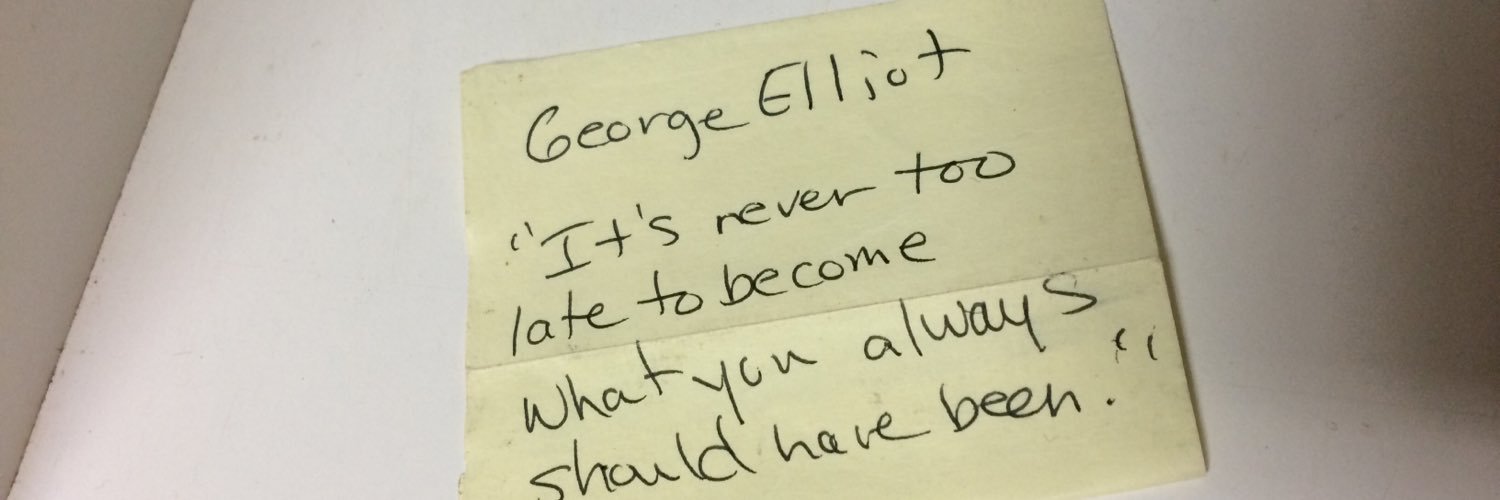 George Elliot
"It's never too
late to become
what you always
should have been."